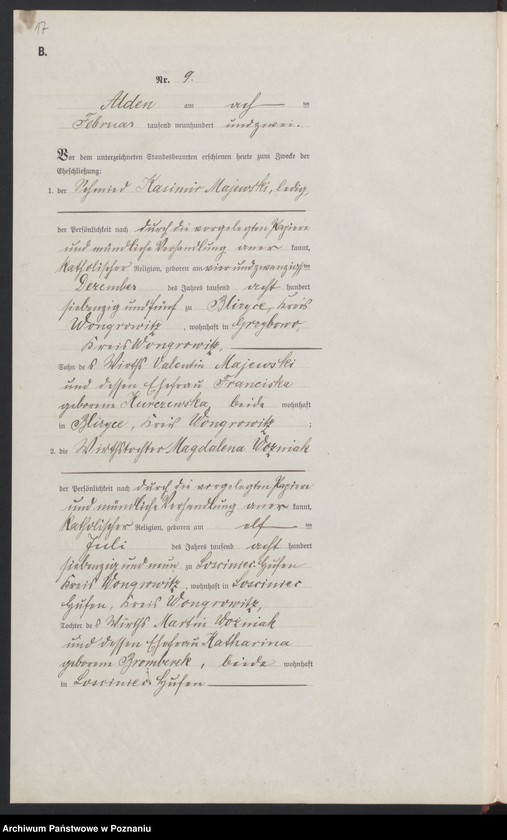 17
B.
Nr. 9.
Alden am ach ten
Februar tausend neunhundert undzwei.
Vor dem unterzeichneten Standesbeamten erschienen heute zum Zwecke der
Eheschließung:
1. der Schmied Kasimir Majewski, ledig,
der Persönlichkeit nach durch die vorgelegten Papiere
und mündliche Verhandlung aner kannt,
katholischer Religion, geboren am vier undzwanzigsten
Dezember des Jahres tausend acht hundert
siebenzig und fünf zu Blizyce, Kreis
Wongrowitz, wohnhaft in Grzybowo,
Kreis Wongrowitz,
Sohn des Wirths Valentin Majewski
und dessen Ehefrau Franciska
geborene Kurczewska, beide wohnhaft
in Blizyce, Kreis Wongrowitz ;
2. die Wirthstochter Magdalena Wozniak
der Persönlichkeit nach durch die vorgelegten Papiere
und mündliche Verhandlung aner kannt,
katholischer Religion, geboren am elf ten
Juli des Jahres tausend acht hundert
siebenzig und neun zu Losciniec Hufen
Kreis Wongrowitz, wohnhaft in Losciniec
Hufen, Kreis Wongrowitz,
Tochter des Wirths Martin Wozniak
und dessen Ehefrau Katharina
geborene Bromberek, beide wohnhaft
in Losciniec Hufen
Archiwum Państwowe w Poznaniu